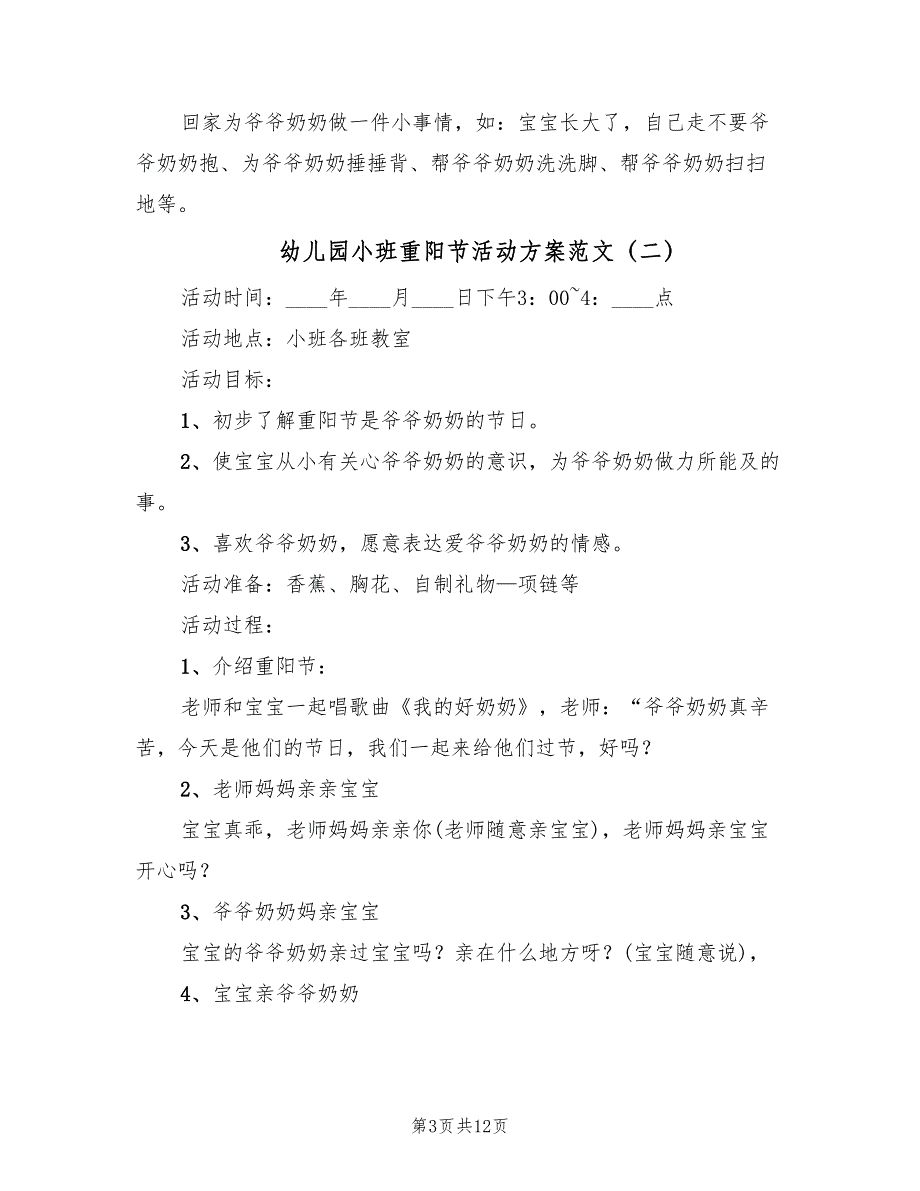 回家为爷爷奶奶做一件小事情，如：宝宝长大了，自己走不要爷
爷奶奶抱、为爷爷奶奶捶捶背、帮爷爷奶奶洗洗脚、帮爷爷奶奶扫扫
地等。
幼儿园小班重阳节活动方案范文（二）
活动时间：____年____月____日下午3：00~4：____点
活动地点：小班各班教室
活动目标：
1、初步了解重阳节是爷爷奶奶的节日。
2、使宝宝从小有关心爷爷奶奶的意识，为爷爷奶奶做力所能及的
事。
3、喜欢爷爷奶奶，愿意表达爱爷爷奶奶的情感。
活动准备：香蕉、胸花、自制礼物—项链等
活动过程：
1、介绍重阳节：
老师和宝宝一起唱歌曲《我的好奶奶》，老师：“爷爷奶奶真辛
苦，今天是他们的节日，我们一起来给他们过节，好吗？
2、老师妈妈亲亲宝宝
宝宝真乖，老师妈妈亲亲你(老师随意亲宝宝)，老师妈妈亲宝宝
开心吗？
3、爷爷奶奶妈亲宝宝
宝宝的爷爷奶奶亲过宝宝吗？亲在什么地方呀？(宝宝随意说)，
4、宝宝亲爷爷奶奶
第3页共12页